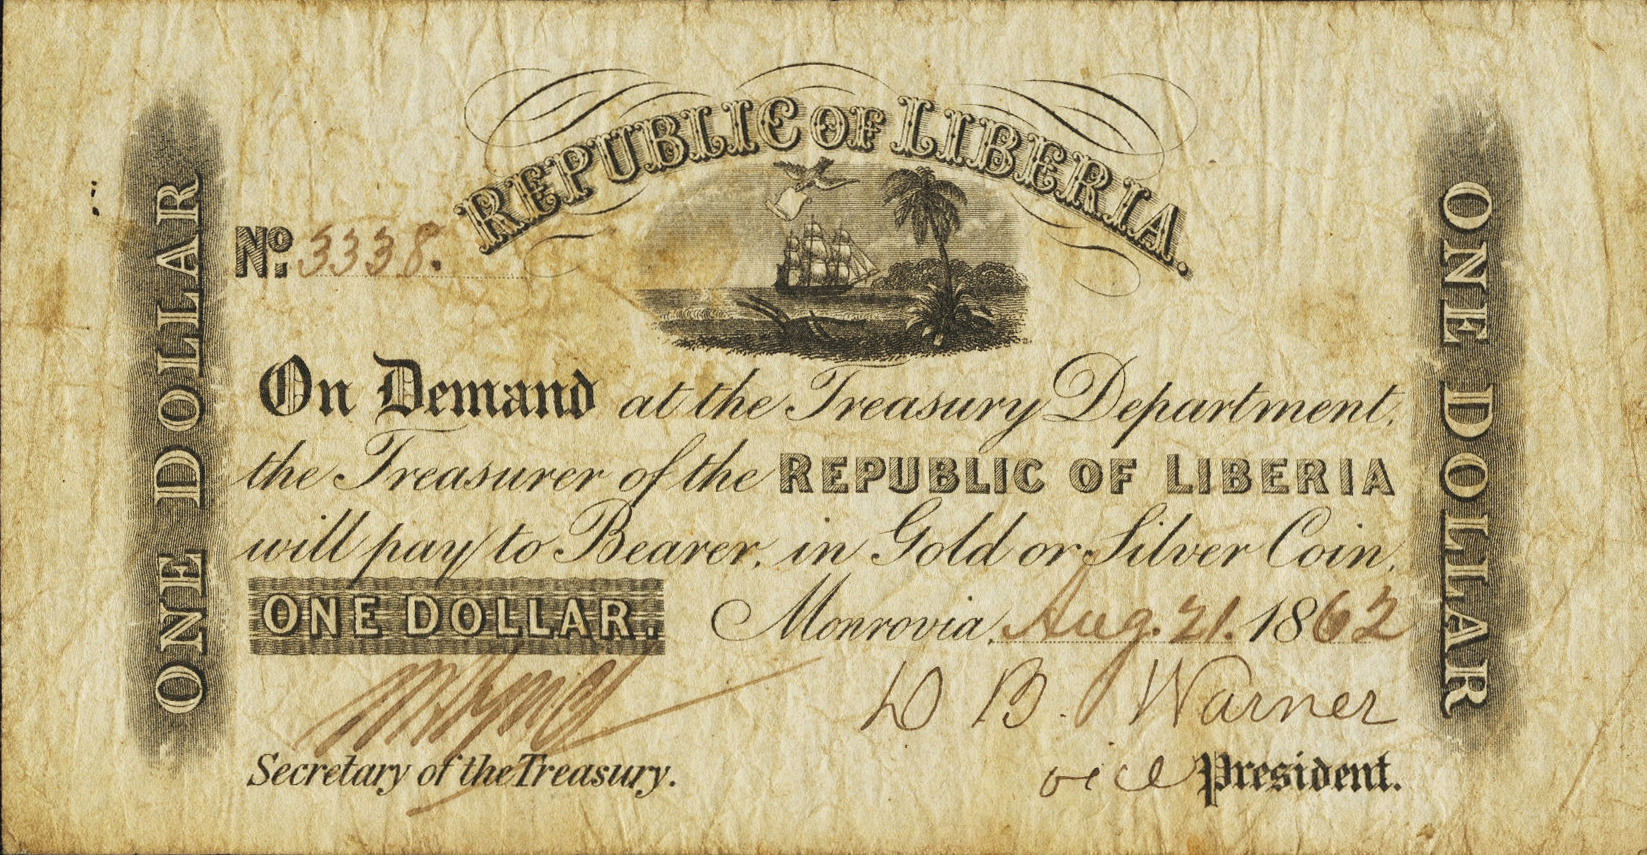 REPUBLIC OF LIBERIA.
No. 3338.
ONE DOLLAR
ONE DOLLAR
On Demand at the Treasury Department,
the Treasurer of the REPUBLIC OF LIBERIA
will pay to Bearer, in Gold or Silver Coin,
ONE DOLLAR. Monrovia, Aug. 21. 1862
D B. Warner
Secretary of the Treasury. vice President.